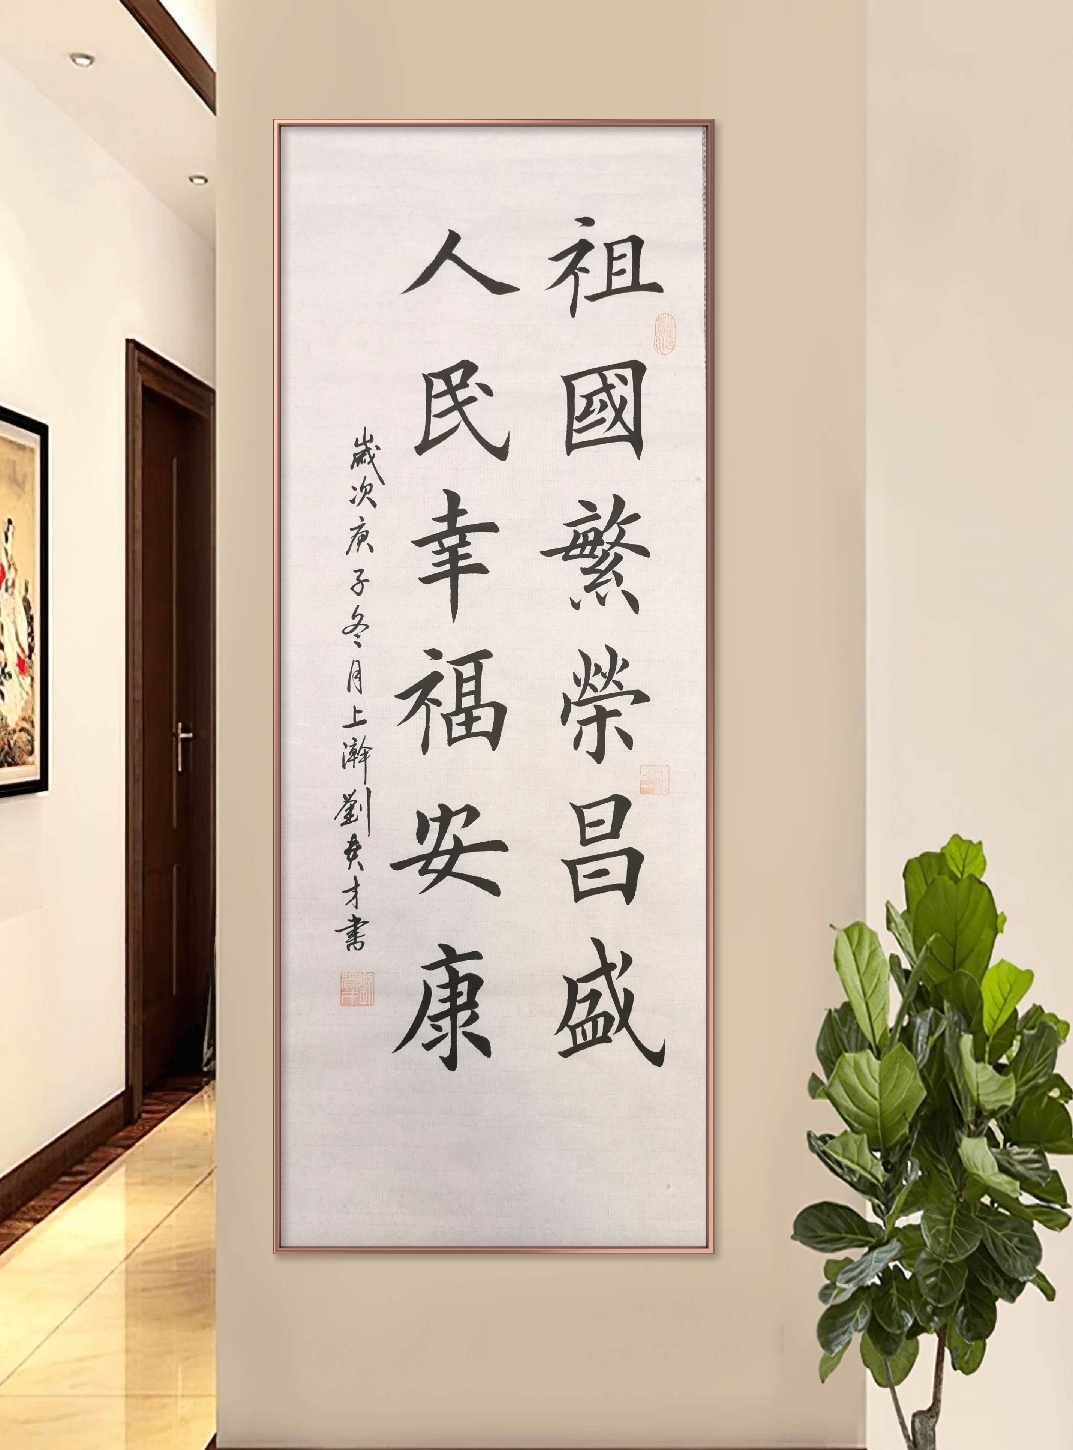 祖國繁榮昌盛
人民幸福安康
歲次庚子冬月上澣劉奐才書